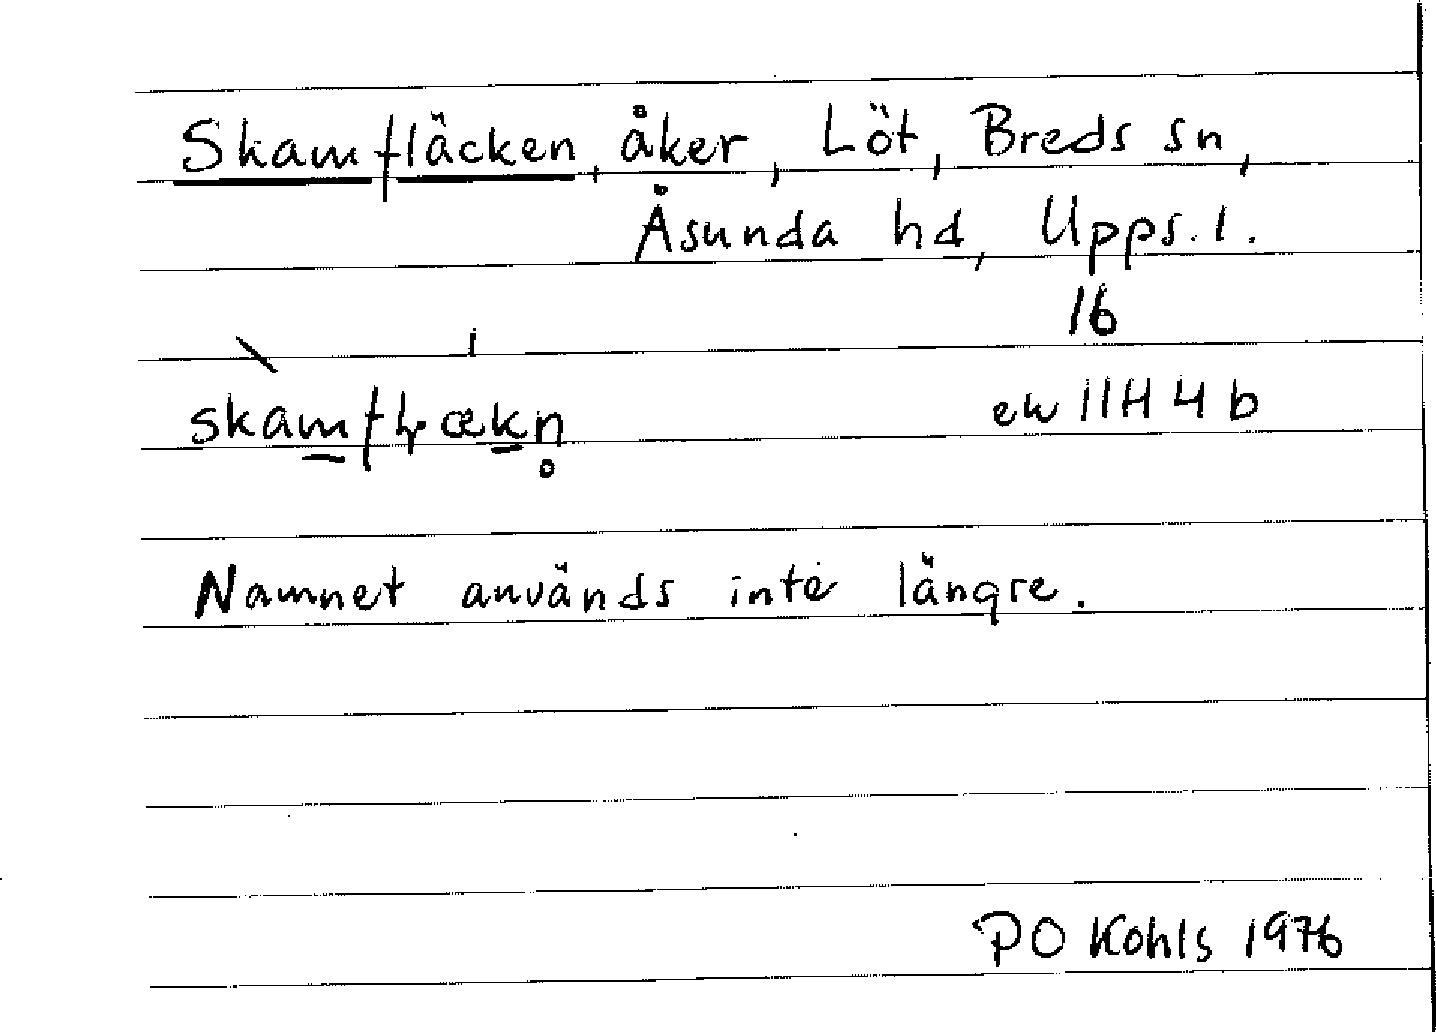 Skamfläcken, åker, Löt, Breds sn,
Åsunda hd, Upps. l.
16
skamfɽækn̥ ek 11H 4 b
Namnet används inte längre.
PO Kohls 1976